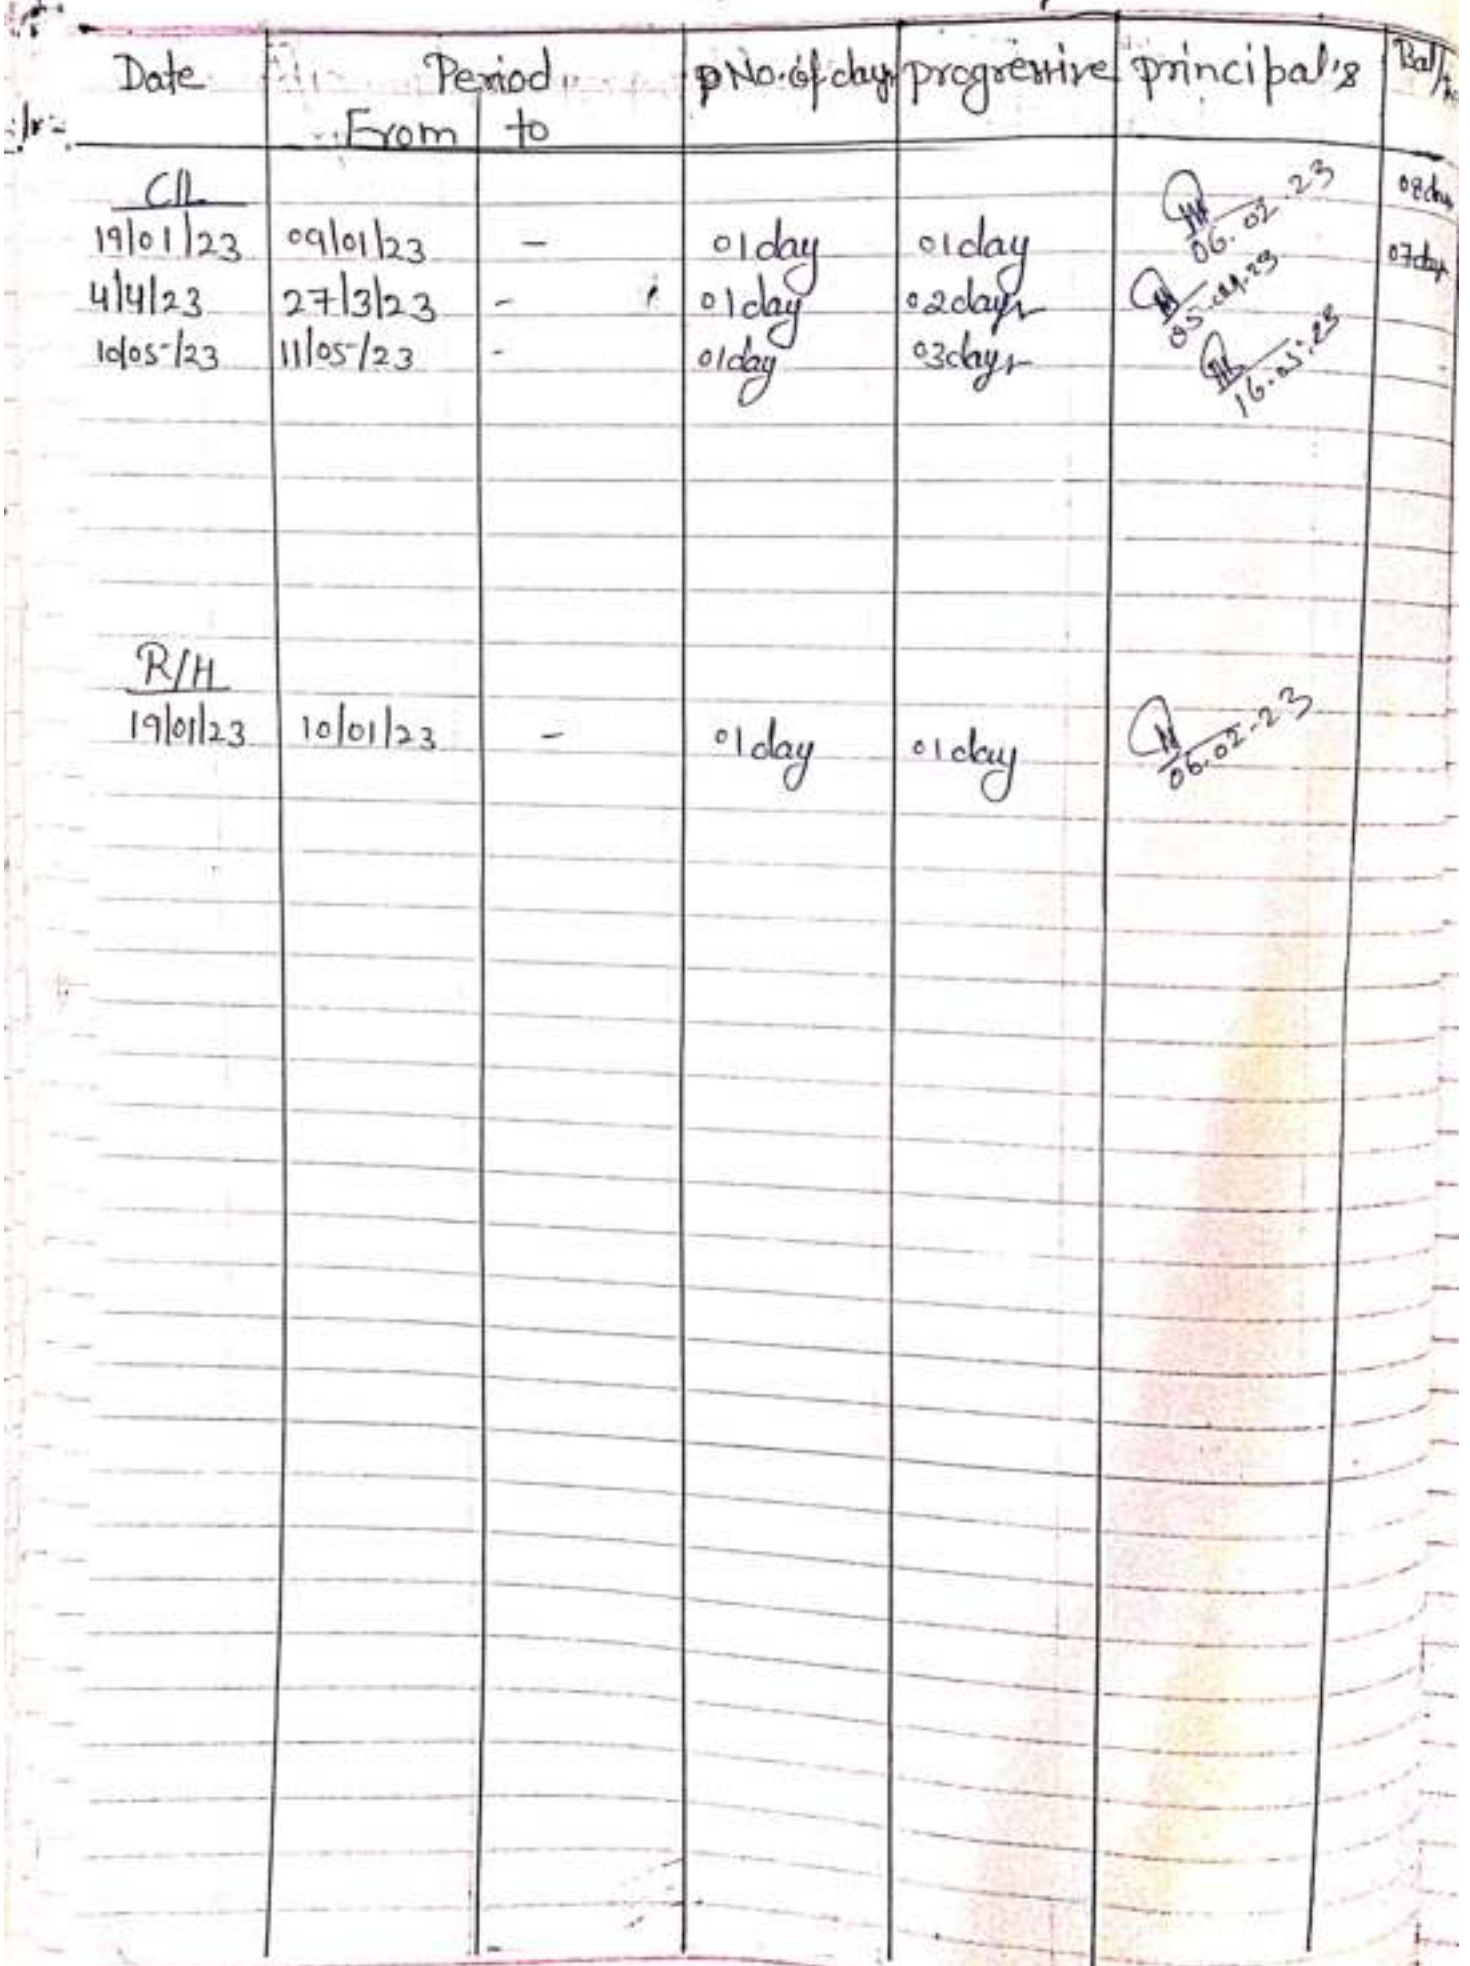 Date Period No. of days progressive principal's Bal/
From to
C/L 08 days
19/01/23 09/01/23 - 01 day 01 day 06.02.23 07 days
4/4/23 27/3/23 - 01 day 02 days 05.04.23
10/05/23 11/05/23 - 01 day 03 days 16.05.23
R/H
19/01/23 10/01/23 - 01 day 01 day 06.02.23